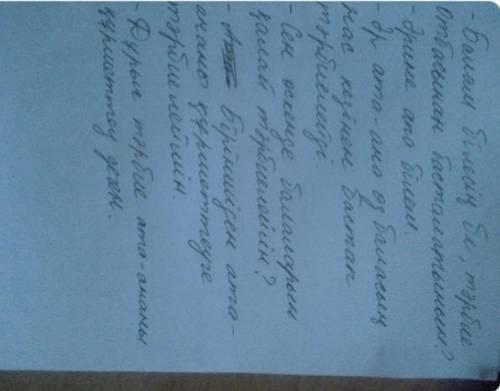 - Балам білесің бе, тәрбие
отбасынан басталатынын?
- Әрине апа білем.
- Әр ата-ана өз баласың
жас кезінен бастап
тәрбиелейді.
- Сен өзіңде балаларың
қалай тәрбиелейсің?
- Біріншіден ата-
ананы құрметтеуге
тәрбиелеймін.
- Дұрыс тәрбие ата-ананы
құрметтеу екен.